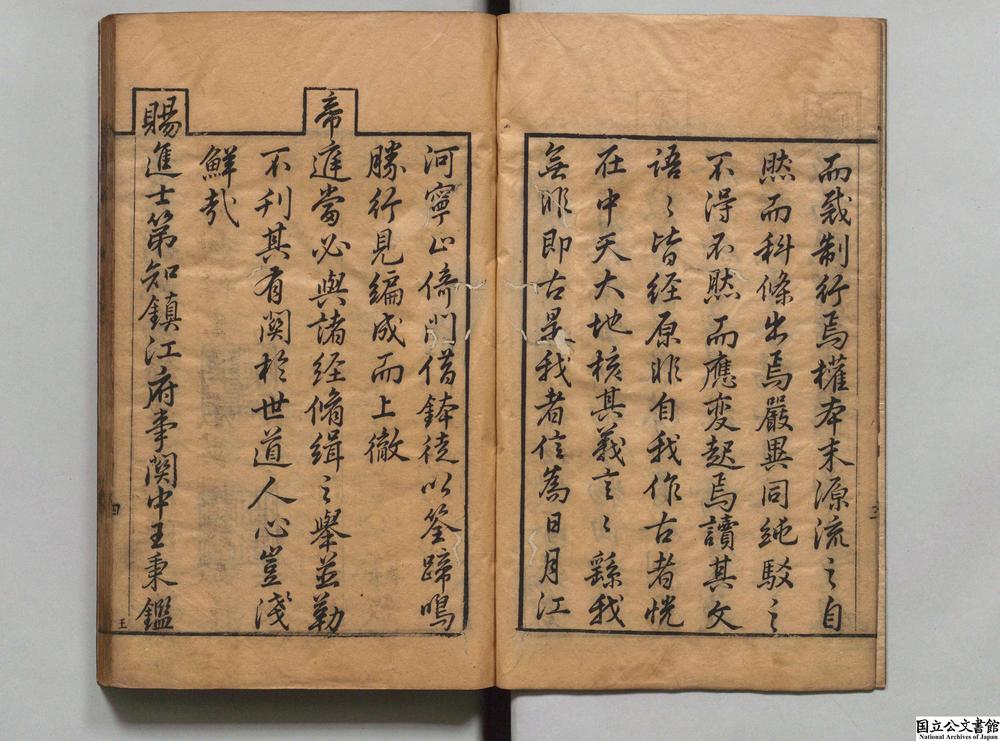 而裁制行焉權本末源流之自
然而科條出焉嚴異同純駁之
不得不然而應変起焉讀其文
語〻皆经原非自我作古者恍
在中天大地核其義言〻繇我
無非即古是我者信為日月江
河寧止倚門借鉢徒以筌蹄鳴
勝行見編成而上徹
帝庭當必與諸経脩缉之舉並勒
不刋其有関扵世道人心豈淺
鮮哉
賜進士第知鎮江府事関中王秉鑑
三
四
王
国立公文書館
National Archives of Japan